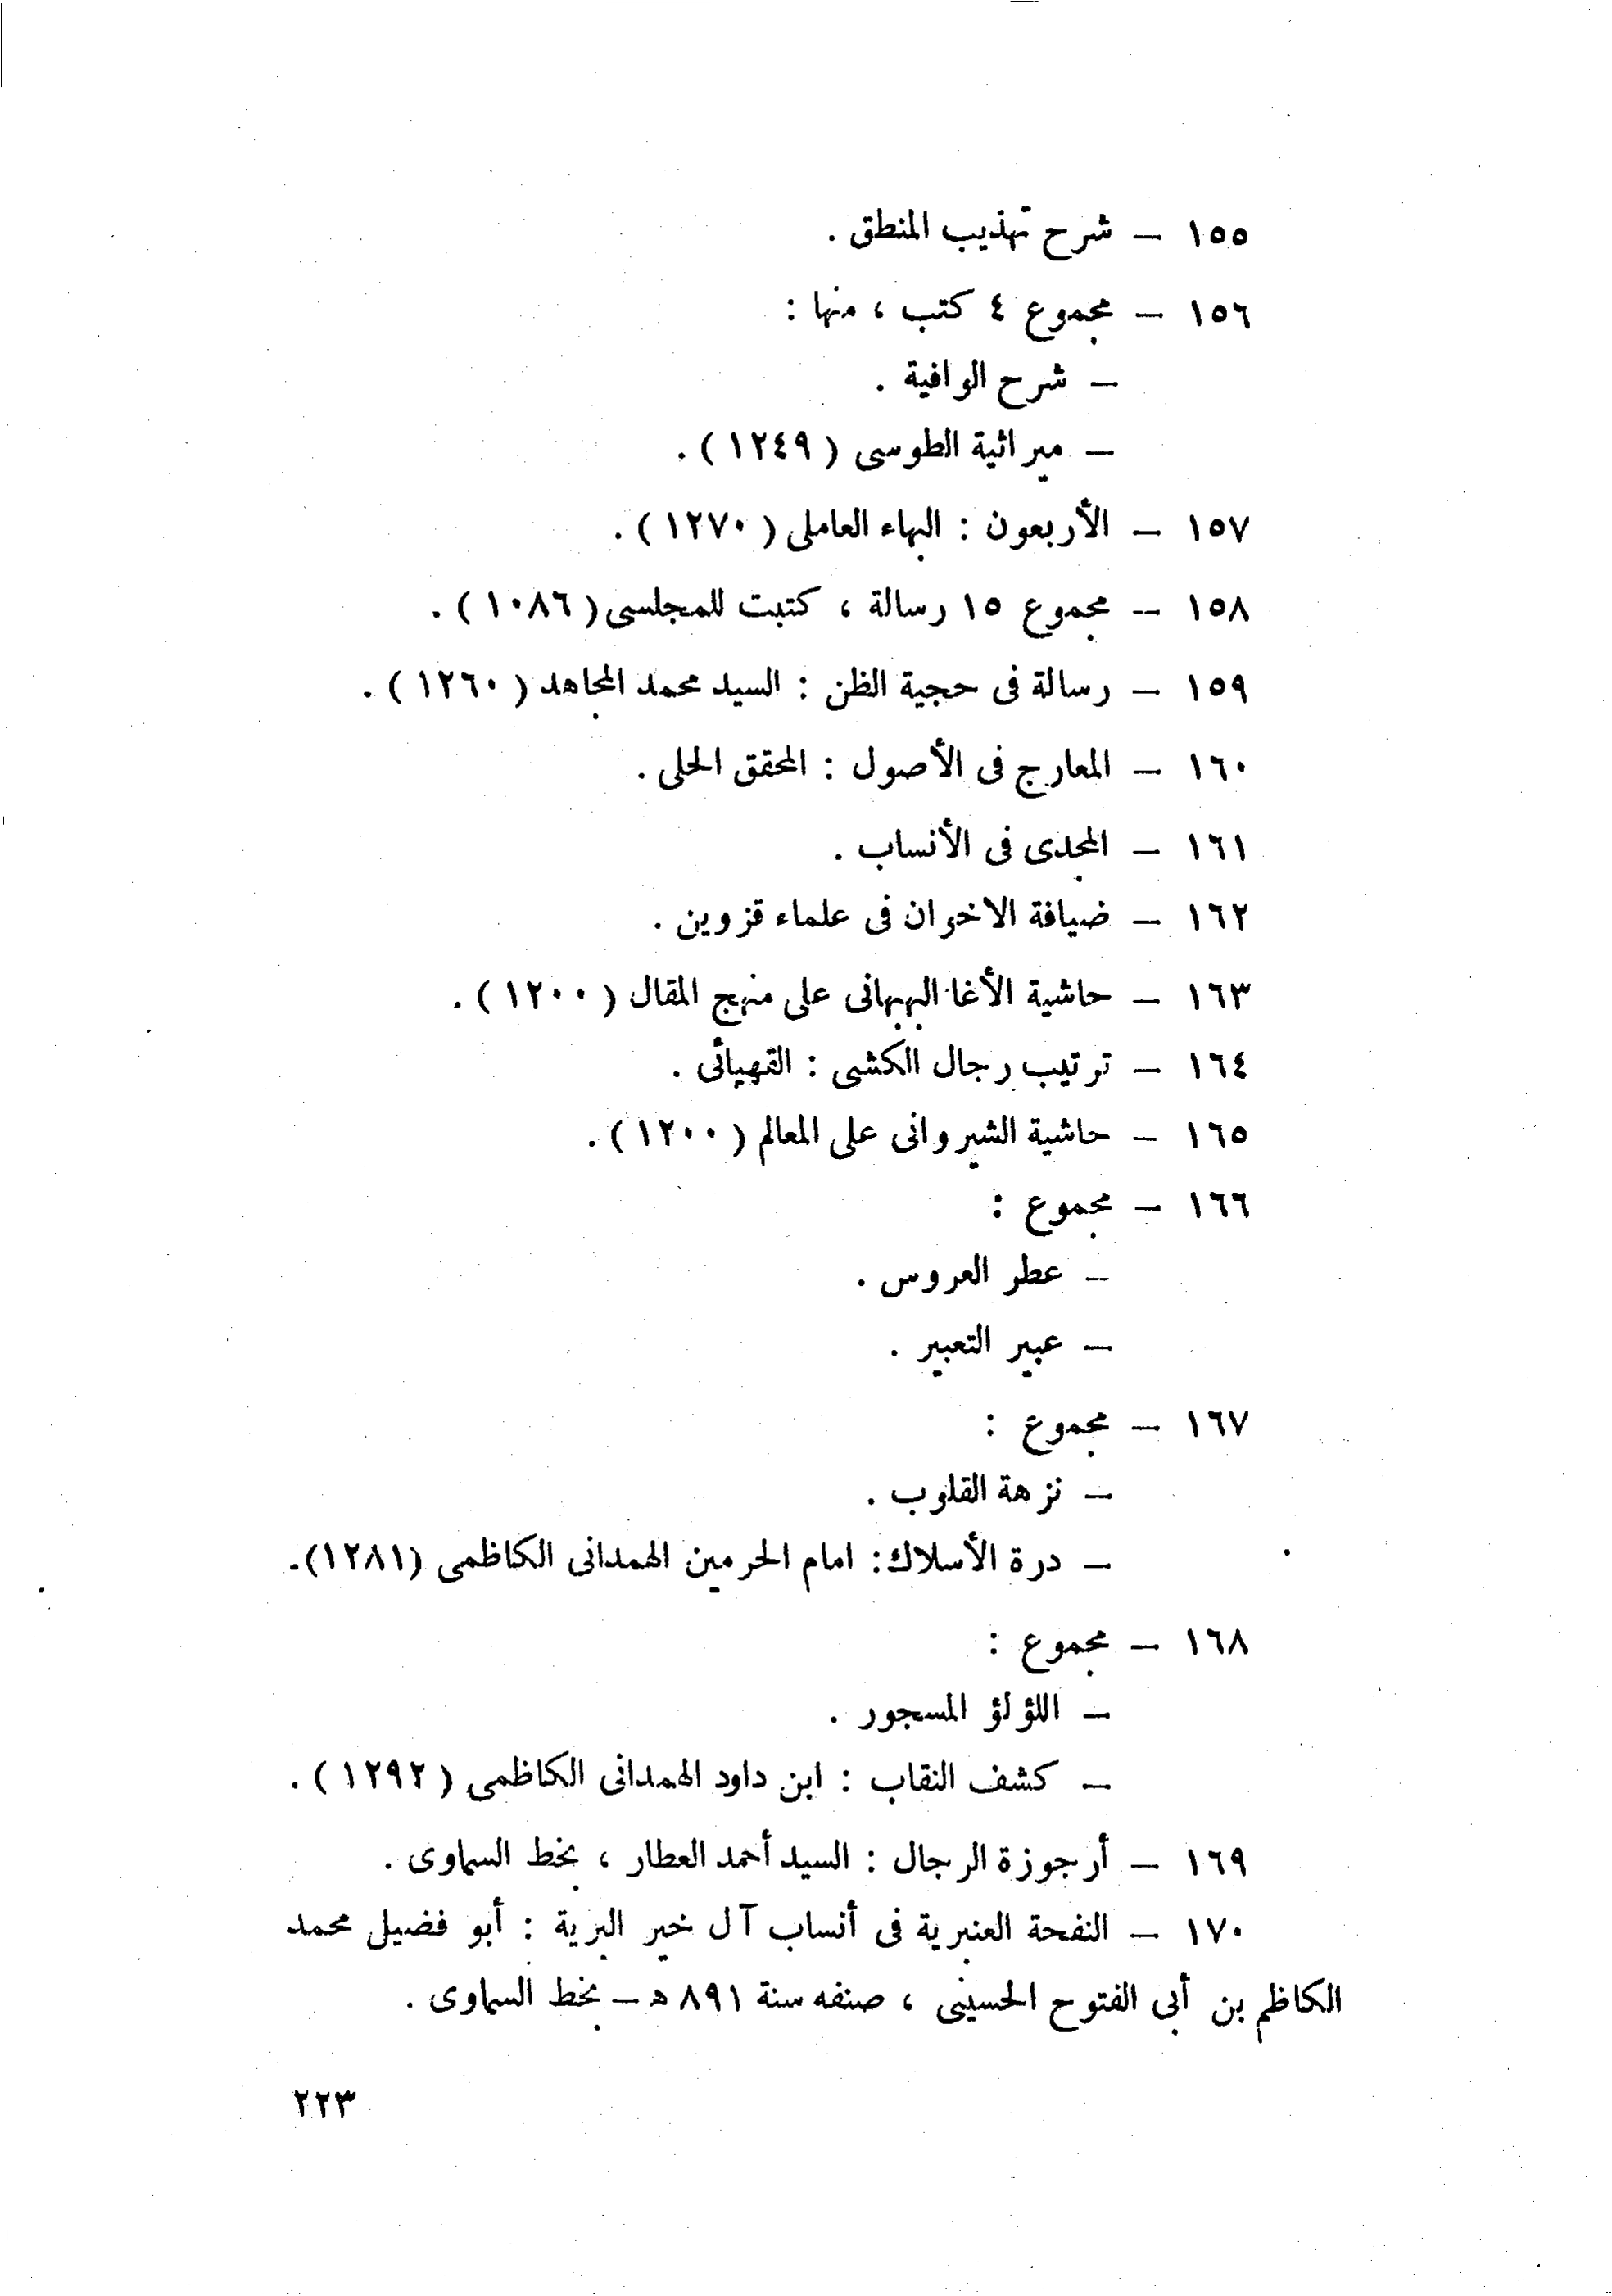 ١٥٥ – شرح تهذيب المنطق .
١٥٦ – مجموع ٤ كتب ، منها :
– شرح الوافية .
– ميراثية الطوسى ( ١٢٤٩ ) .
١٥٧ – الأربعون : البهاء العاملى ( ١٢٧٠ ) .
١٥٨ – مجموع ١٥ رسالة ، كتبت للمجلسى ( ١٠٨٦ ) .
١٥٩ – رسالة فى حجية الظن : السيد محمد المجاهد ( ١٢٦٠ ) .
١٦٠ – المعارج فى الأصول : المحقق الحلى .
١٦١ – المجدى فى الأنساب .
١٦٢ – ضيافة الاخوان فى علماء قزوين .
١٦٣ – حاشية الأغا البهبهانى على منهج المقال ( ١٢٠٠ ) .
١٦٤ – ترتيب رجال الكشى : القهپائى .
١٦٥ – حاشية الشيروانى على المعالم ( ١٢٠٠ ) .
١٦٦ – مجموع :
– عطر العروس .
– عبير التعبير .
١٦٧ – مجموع :
– نزهة القلوب .
– درة الأسلاك : امام الحرمين الهمدانى الكاظمى (١٢٨١) .
١٦٨ – مجموع :
– اللؤلؤ المسجور .
– كشف النقاب : ابن داود الهمدانى الكاظمى ( ١٢٩٢ ) .
١٦٩ – أرجوزة الرجال : السيد أحمد العطار ، بخط السماوى .
١٧٠ – النفحة العنبرية فى أنساب آل خير البرية : أبو فضيل محمد
الكاظم بن أبى الفتوح الحسينى ، صنفه سنة ٨٩١ ه – بخط السماوى .
٢٢٣